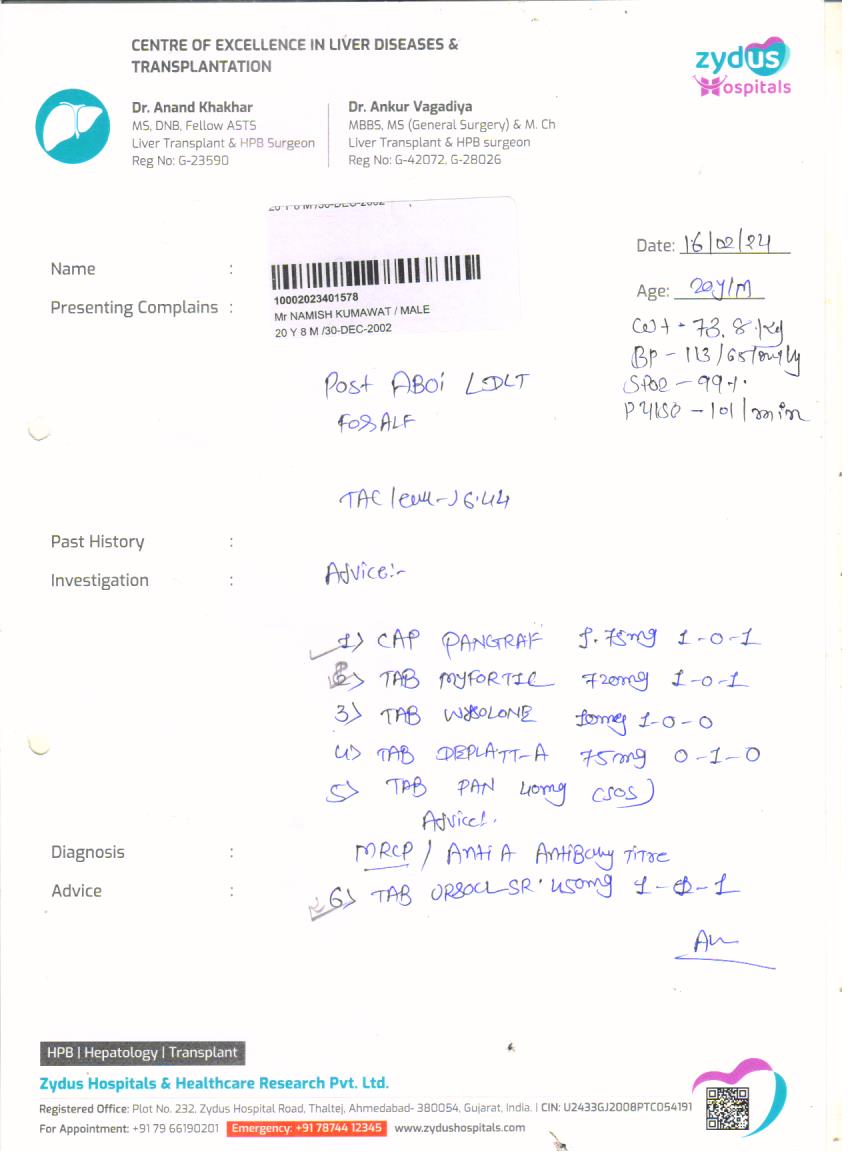 CENTRE OF EXCELLENCE IN LIVER DISEASES &
TRANSPLANTATION
zydus
Hospitals
Dr. Anand Khakhar
MS, DNB, Fellow ASTS
Liver Transplant & HPB Surgeon
Reg No: G-23590
Dr. Ankur Vagadiya
MBBS, MS (General Surgery) & M. Ch
Liver Transplant & HPB surgeon
Reg No: G-42072, G-28026
20 Y 8 M /30-DEC-2002
Date: 16/02/24
Name :
Age: 20Y/M
10002023401578
Presenting Complains :
Mr NAMISH KUMAWAT / MALE
20 Y 8 M /30-DEC-2002
Wt - 73.8 kg
BP - 113/65
SPO2 - 99%
Pulse - 101/min
Post ABOi LDLT
For ALF
TAC 6.44
Past History :
Investigation :
Advice:-
1) CAP PANGRAF 1-0-1
2) TAB MYFORTIC 720mg 1-0-1
3) TAB WYSOLONE 10mg 1-0-0
4) TAB DEPLATT-A 75mg 0-1-0
5) TAB PAN 40mg (SOS)
Advice:
Diagnosis :
MRCP / Anti A AntiBody Titre
Advice :
6) TAB URSOCOL-SR 450mg
HPB | Hepatology | Transplant
Zydus Hospitals & Healthcare Research Pvt. Ltd.
Registered Office: Plot No. 232, Zydus Hospital Road, Thaltej, Ahmedabad- 380054, Gujarat, India. | CIN: U2433GJ2008PTC054191
For Appointment: +91 79 66190201 Emergency: +91 78744 12345 www.zydushospitals.com